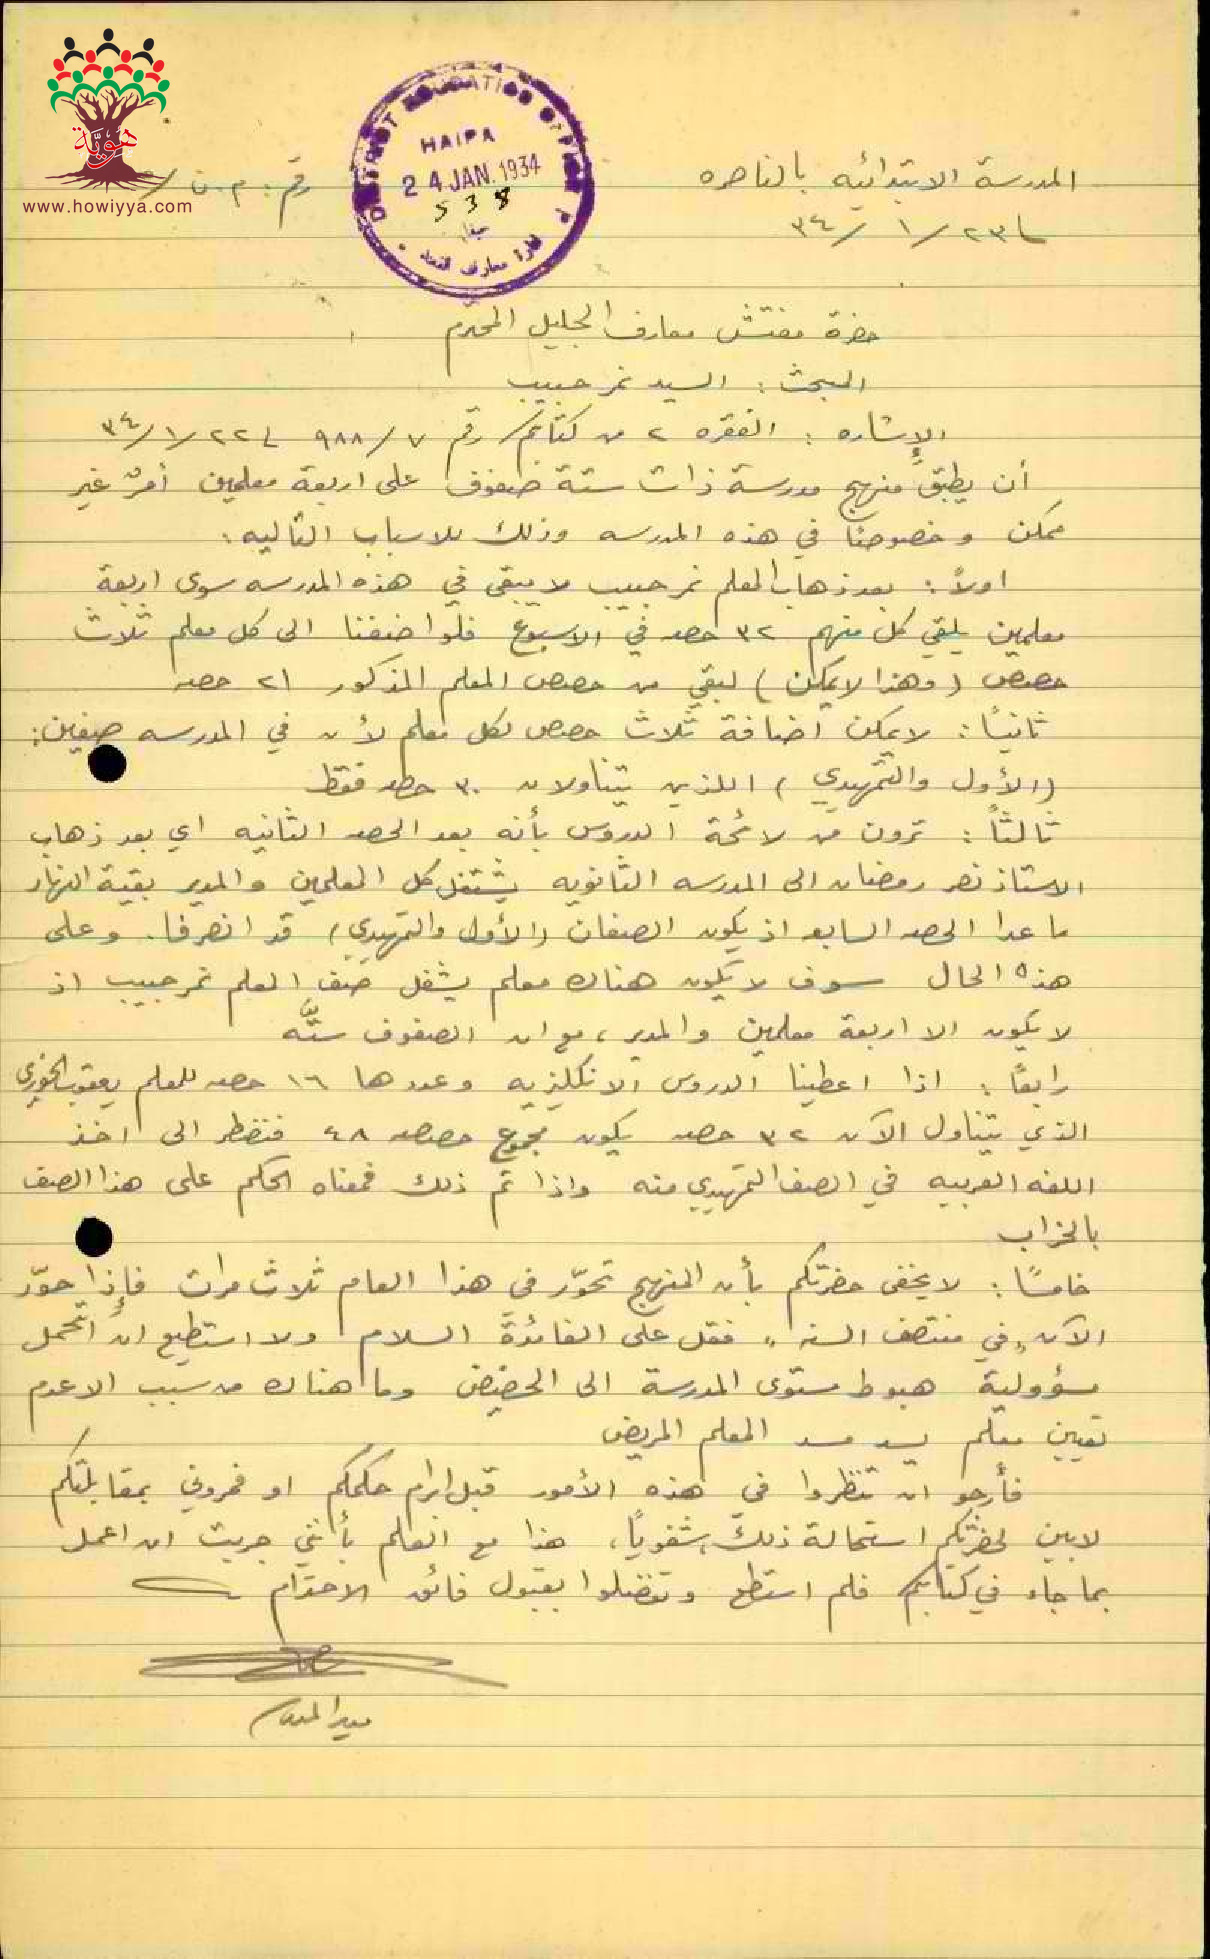 هويّة
www.howiyya.com
DISTRICT EDUCATION OFFICE
HAIFA
24 JAN. 1934
538
حيفا
المدرسة الابتدائيه بالناصره
رقم: م.ن/
٢٣/١/٣٤
حضرة مفتش معارف الجليل المحترم
البحث: السيد نمر حبيب
الإشاره: الفقره ٢ من كتابكم رقم ٩٨٨/٧ ٢٢/١/٣٤
أن يطبق منهج مدرسة ذات ستة صفوف على اربعة معلمين أمرٌ غير
ممكن وخصوصًا في هذه المدرسه وذلك للاسباب التاليه:
اولاً: بعد ذهاب المعلم نمر حبيب لا يبقى في هذه المدرسه سوى اربعة
معلمين يلقي كل منهم ٣٢ حصه في الاسبوع فلو اضفنا الى كل معلم ثلاث
حصص (وهذا لا يمكن) لبقي من حصص المعلم المذكور ٢١ حصه
ثانيًا: لا يمكن اضافة ثلاث حصص لكل معلم لأن في المدرسه صفين:
(الأول والتمهيدي) اللذين يتناولان ٣٠ حصه فقط
ثالثاً: ترون من لائحة الدروس بأنه بعد الحصه الثانيه اي بعد ذهاب
الاستاذ نصر رمضان الى المدرسه الثانويه يشتغل كل المعلمين والمدير بقية النهار
ما عدا الحصه السابعه اذ يكون الصفان (الأول والتمهيدي) قد انصرفا. وعلى
هذه الحال سوف لا يكون هناك معلم يشغل صف المعلم نمر حبيب اذ
لا يكون الا اربعة معلمين والمدير، مع ان الصفوف ستّه
رابعًا: اذا اعطينا الدروس الانكليزيه وعددها ١٦ حصه للمعلم يعقوب الخوري
الذي يتناول الآن ٣٢ حصه يكون مجموع حصصه ٤٨ فنضطر الى اخذ
اللغه العربيه في الصف التمهيدي منه واذا تم ذلك فمعناه الحكم على هذا الصف
بالخراب
خامسًا: لا يخفى حضرتكم بأن المنهج تحوّر في هذا العام ثلاث مرات فإذا حوّر
الآن "في منتصف السنه" فقل على الفائدة السلام ولا استطيع ان اتحمل
مسؤولية هبوط مستوى المدرسة الى الحضيض وما هناك من سبب الا عدم
تعيين معلم يسد مسد المعلم المريض
فأرجو ان تنظروا في هذه الأمور قبل ابرام حكمكم او فمروني بمقابلتكم
لابين لحضرتكم استحالة ذلك شفويًا، هذا مع العلم بأنني جربت ان اعمل
بما جاء في كتابكم فلم استطع وتفضلوا بقبول فائق الاحترام
مدير المدرسه